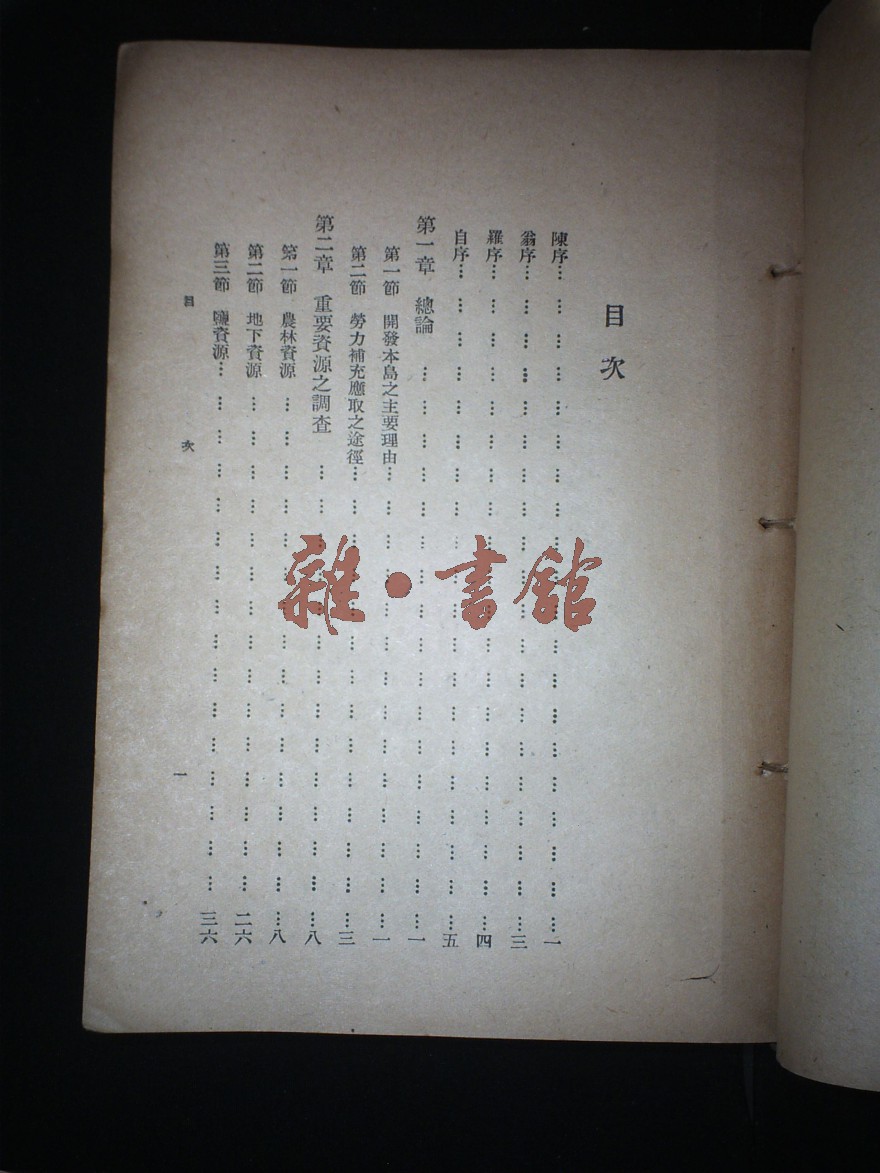 目次
陳序… … … … … … … … … … … … … … … … … … … …一
翁序… … … … … … … … … … … … … … … … … … … …三
羅序… … … … … … … … … … … … … … … … … … … …四
自序… … … … … … … … … … … … … … … … … … … …五
第一章 總論 … … … … … … … … … … … … … … … … …一
第一節 開發本島之主要理由… … … … … … … … … … … … … …一
第二節 勞力補充應取之途徑… … … … … … … … … … … … … …三
第二章 重要資源之調查 … … … … … … … … … … … … … …八
第一節 農林資源 … … … … … … … … … … … … … … … …八
第二節 地下資源 … … … … … … … … … … … … … … … 二六
第三節 鹽資源… … … … … … … … … … … … … … … … 三六
目次 一
雜·書館